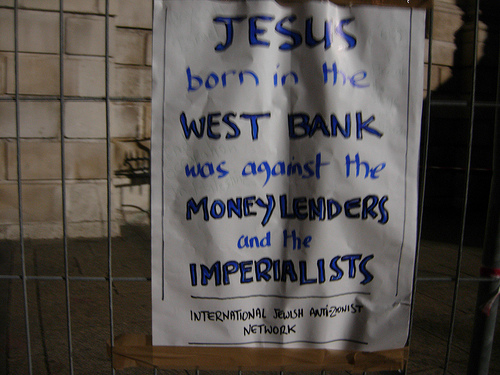 JESUS
born in the
WEST BANK
was against the
MONEYLENDERS
and the
IMPERIALISTS
INTERNATIONAL JEWISH ANTI-ZIONIST
NETWORK